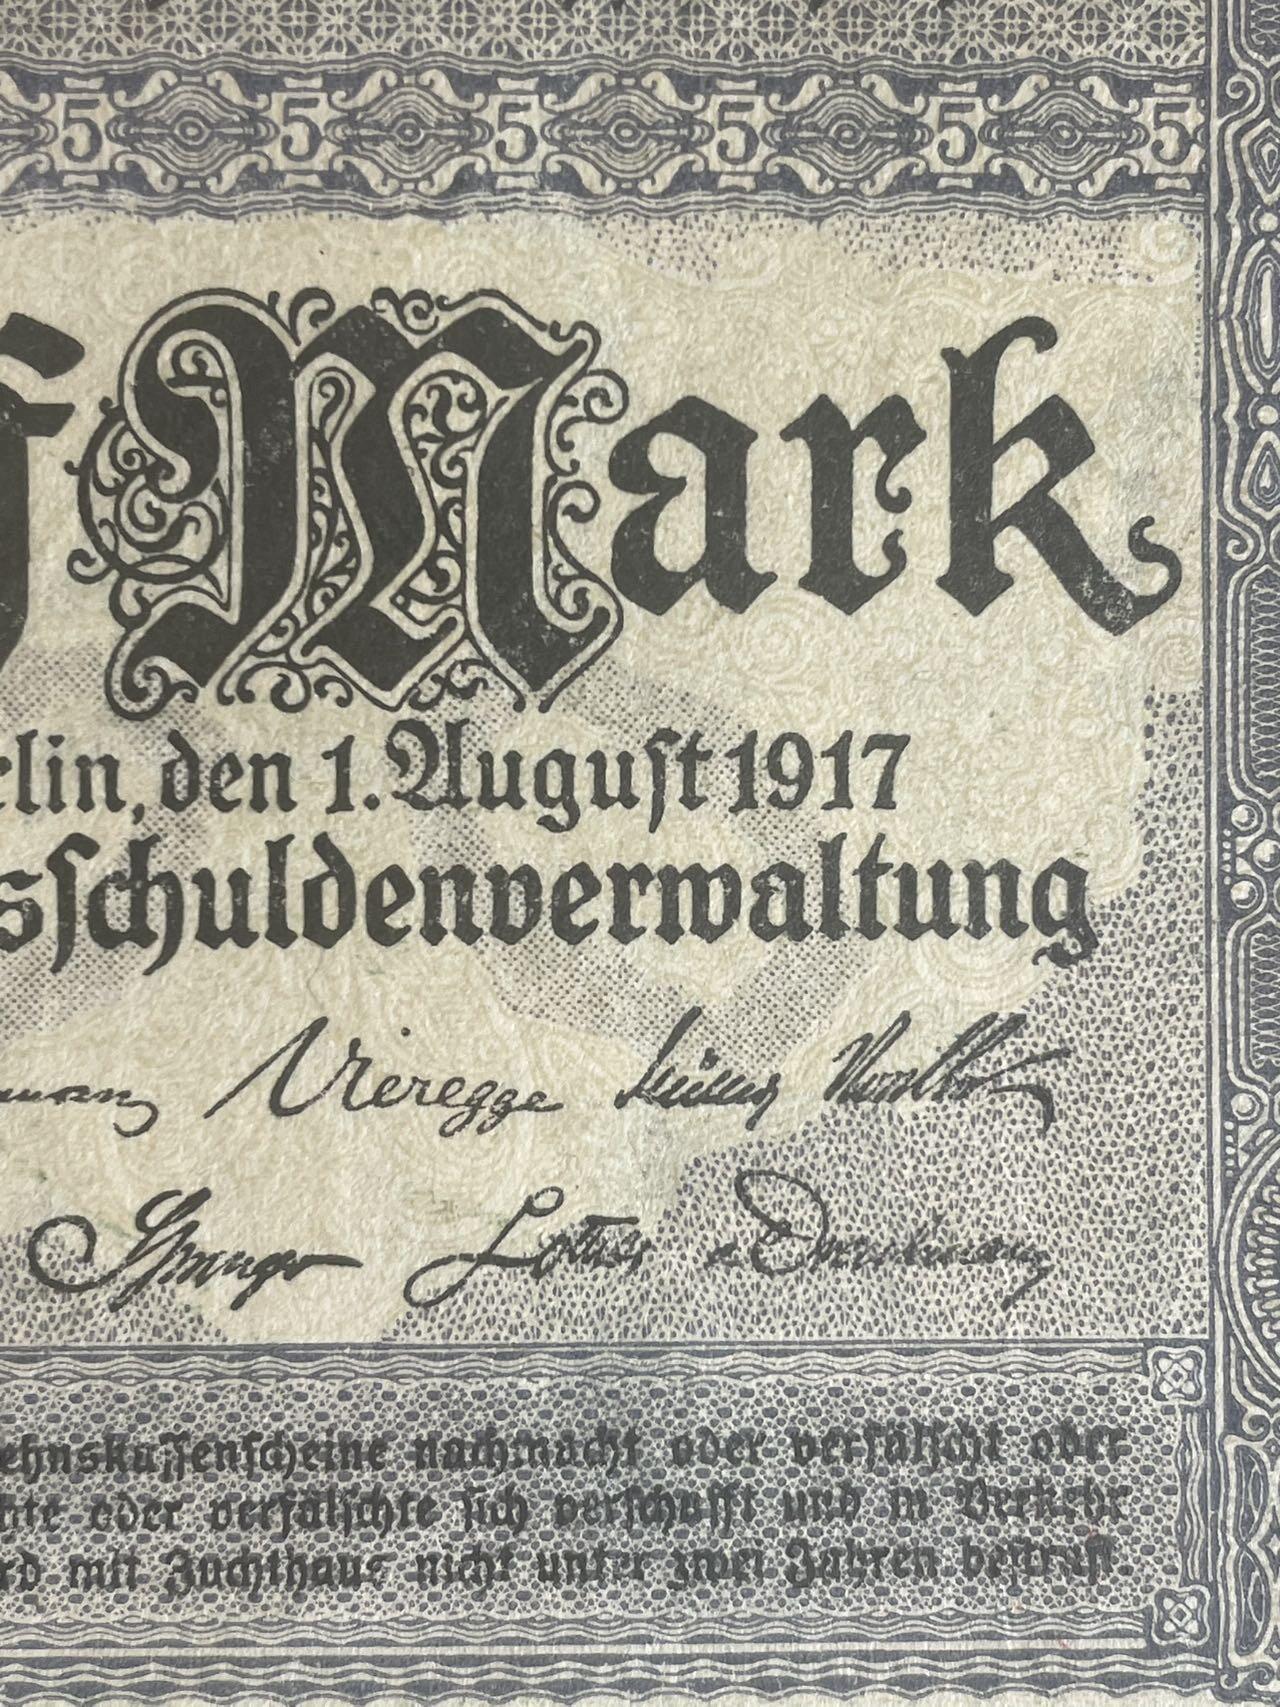 5 5 5 5 5 5
f Mark
lin, den 1. August 1917
sschuldenverwaltung
Vieregge Müller
Springer
ehnskassenscheine nachmacht oder verfälscht oder
hte oder verfälschte sich verschafft und in Verkehr
rd mit Zuchthaus nicht unter zwei Jahren bestraft.